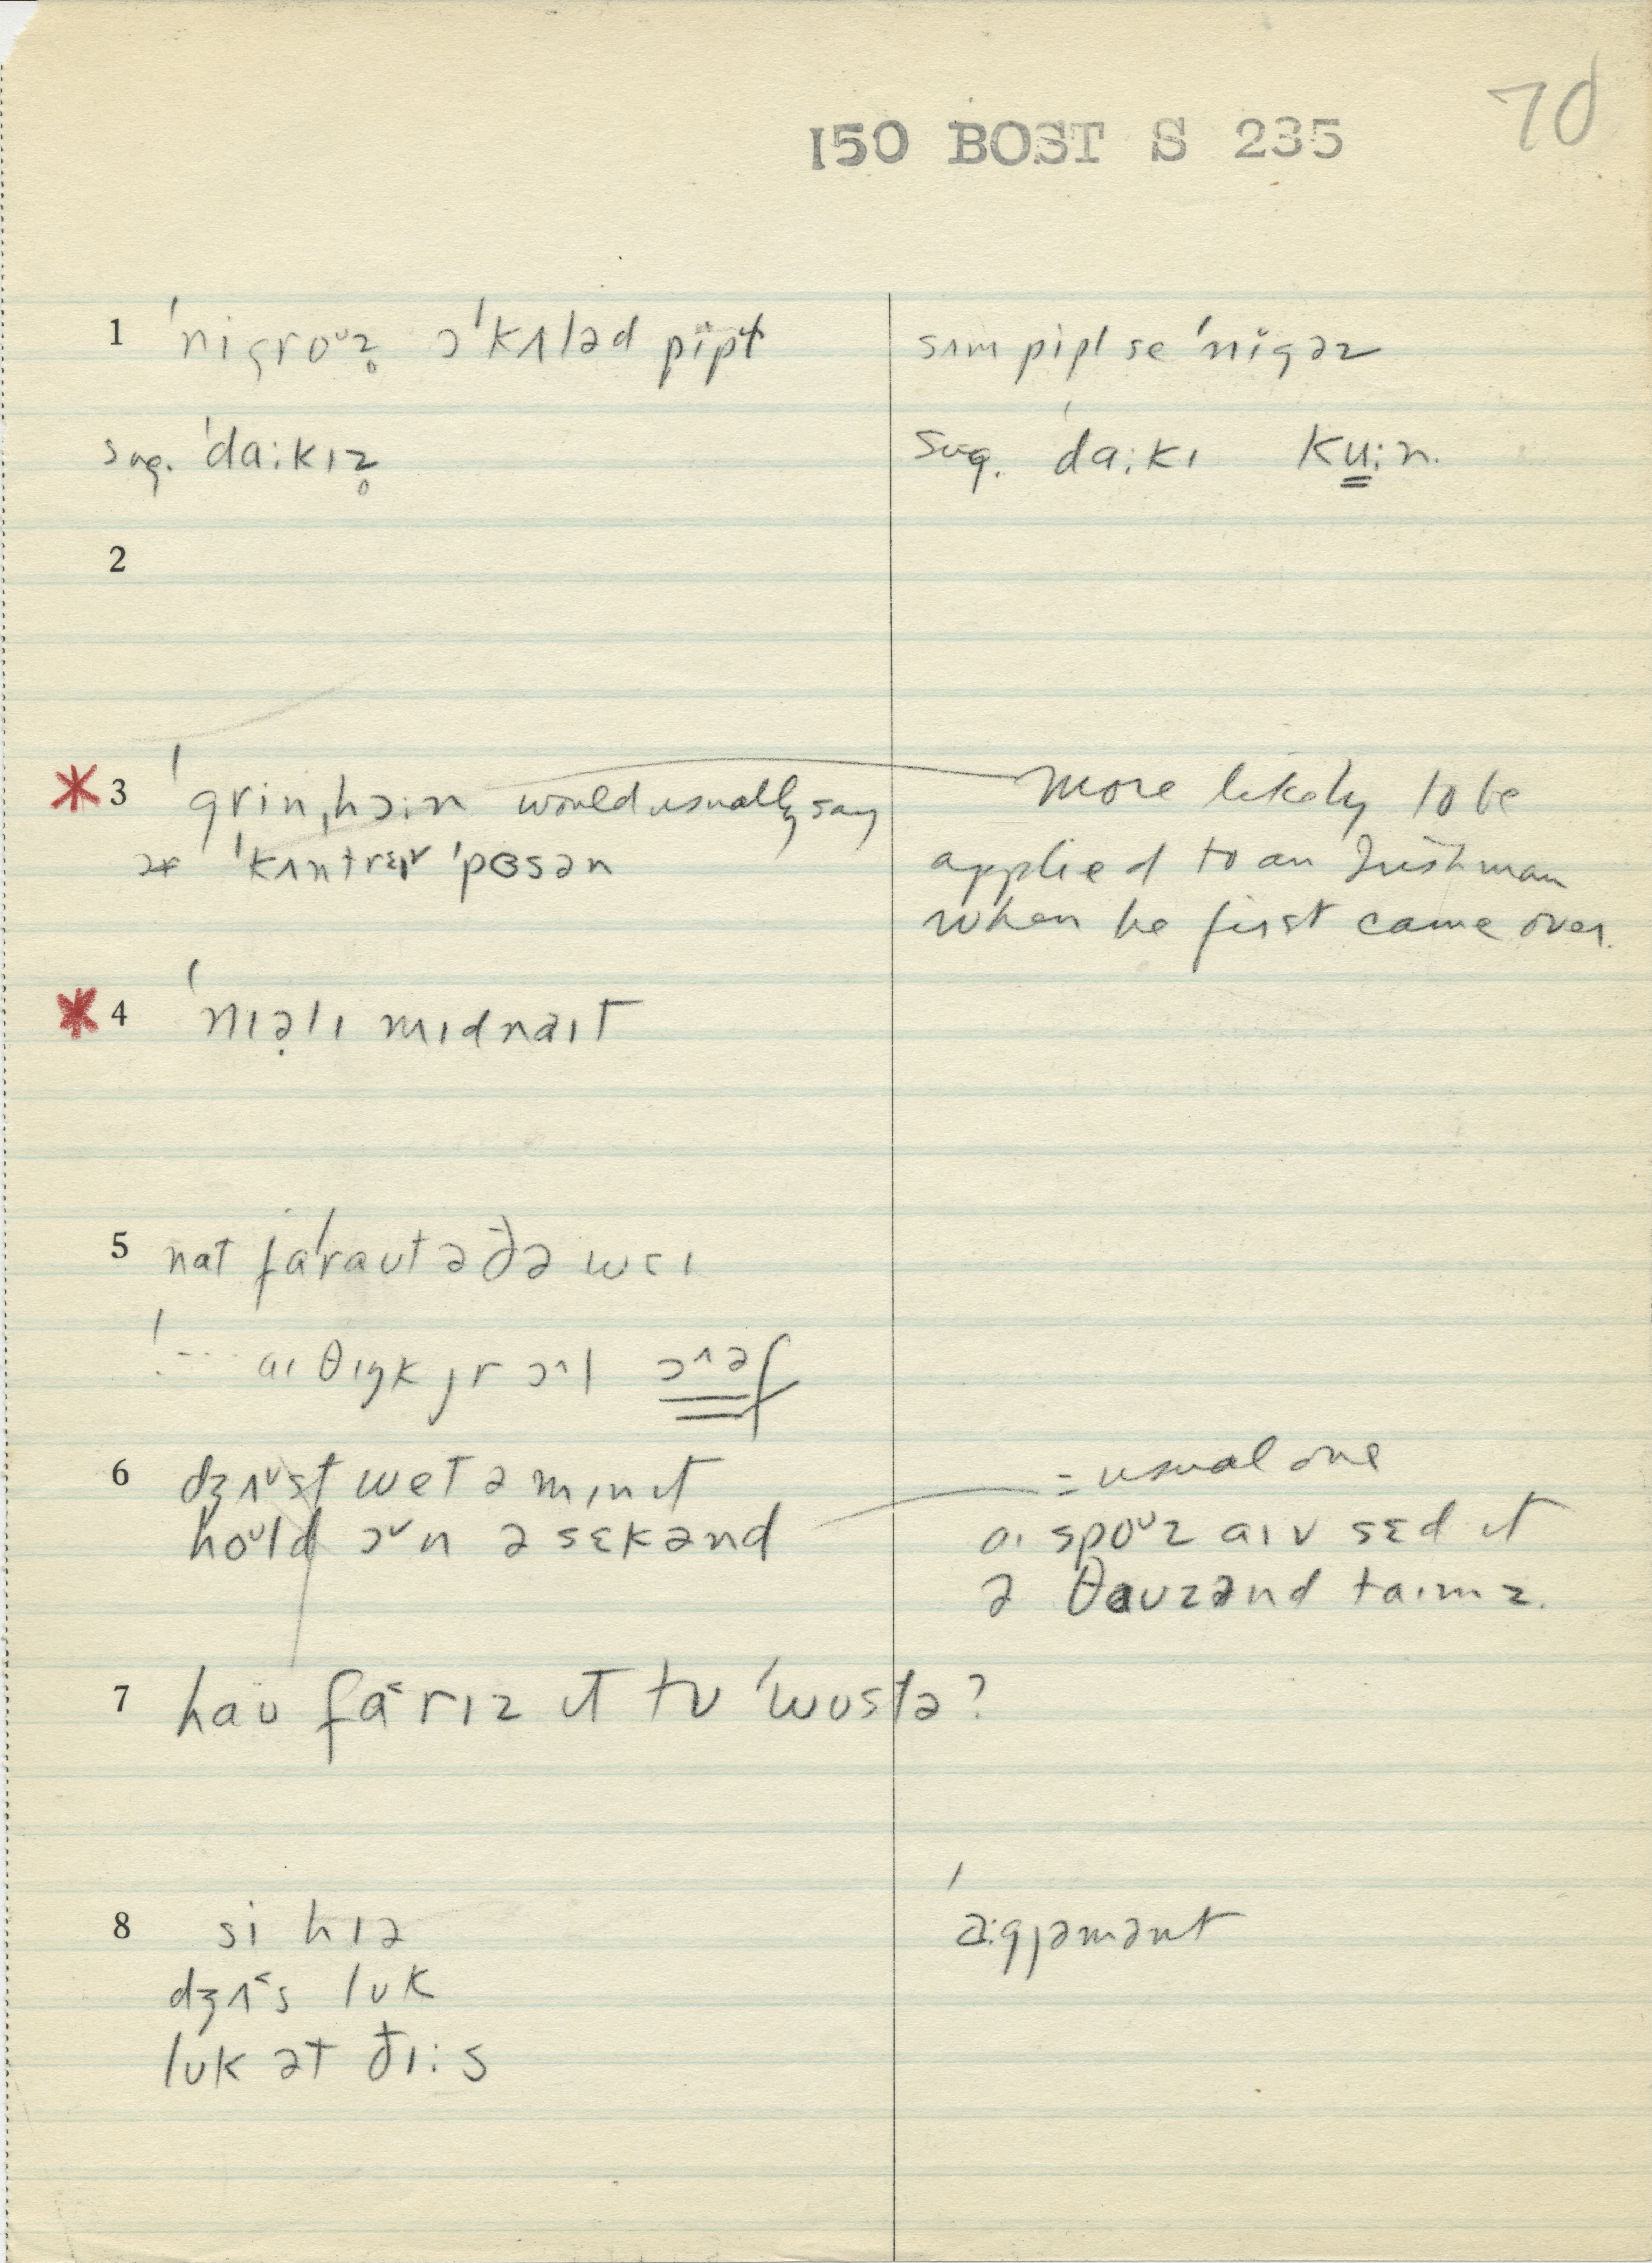 70
150 BOST S 235
1 ˈnigroᵘz̥ ɔˈkʌləd pipɫ
sʌm pipl se ˈnigəz
sug. ˈdaːkɪz̥
sug. ˈdaːkɪ kuːn.
2
* 3 ˈgrinˌhɔːn would usually say
more likely to be
ɔr ˈkʌntrɪ ˈpɜsən
applied to an Irishman
when he first came over.
* 4 ˈnɪəlɪ mɪdnaɪt
5 nat faˈraʊt ə ðə wɛɪ
aɪ θɪŋk jr ɔ^l ɔ^əf
6 dʒʌ˅st wet ə mɪnɪt
= usual one
hoᵘld ɔ˅n ə sɛkənd
aɪ spoᵘz aɪv sɛd ɪt
ə θaʊzənd taɪmz.
7 haʊ fa˂rɪz ɪt tʊ ˈwʊstə?
8 si hɪə
ˈaːgjəmənt
dʒʌ˂s lʊk
lʊk ət ðɪːs